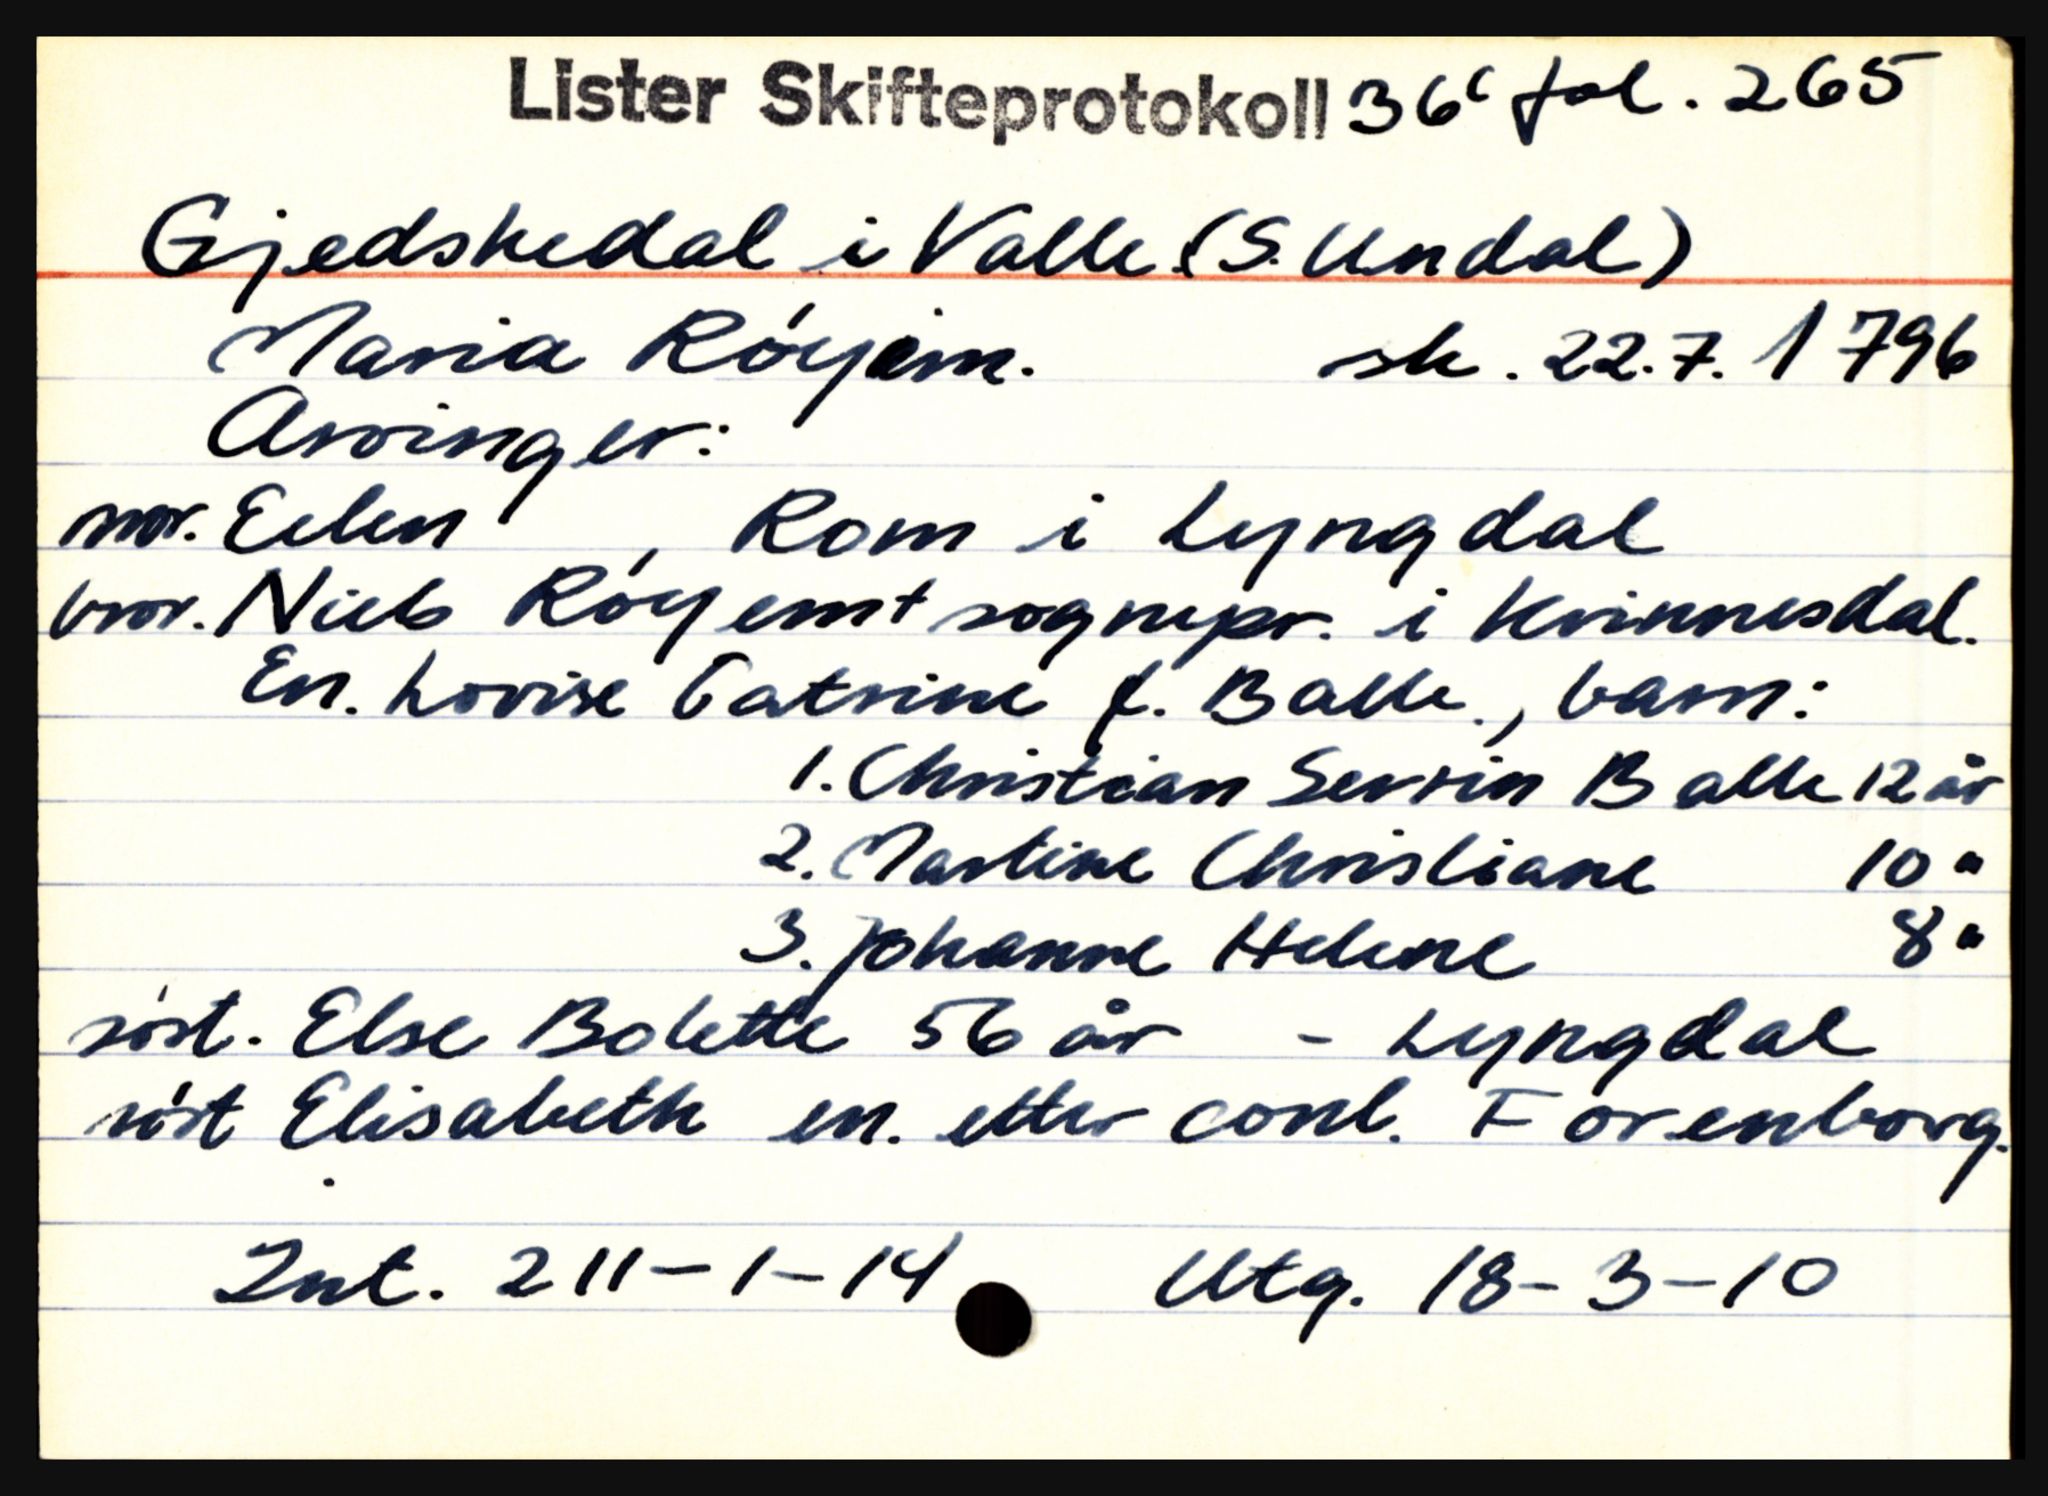 Lister Skifteprotokoll 36c fol. 265
Gjedskedal i Valle (S. Undal)
Maria Róyem. sk. 22.7. 1796
Arvinger:
mor. Eilen , Rom i Lyngdal
bror. Niels Róyem + sognepr. i Kvinnesdal.
En. Lovise Catrine f. Balle., barn:
1. Christian Severin Balle 12 år
2. Martine Christiane 10 "
3. Johanne Helene 8 "
søst. Else Bolette 56 år - Lyngdal
søst Elisabeth en. etter conl. Forenborg.
Int. 211-1-14 Utg. 18-3-10